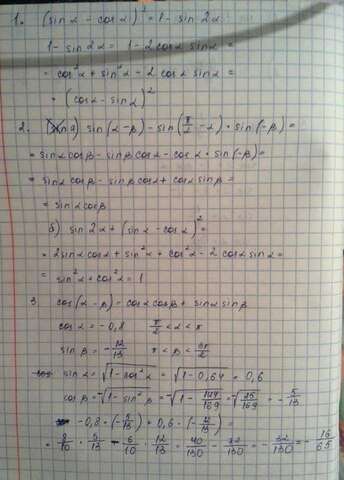 1. (sin α - cos α)² = 1 - sin 2α
1 - sin 2α = 1 - 2cos α sin α =
= cos²α + sin²α - 2 cos α sin α =
= (cos α - sin α)²
2. а) sin(α - β) - sin(π/2 - α) · sin(-β) =
= sin α cos β - sin β cos α - cos α · sin(-β) =
= sin α cos β - sin β cos α + cos α sin β =
= sin α cos β
б) sin 2α + (sin α - cos α)² =
= 2 sin α cos α + sin²α + cos²α - 2 cos α sin α =
= sin²α + cos²α = 1
3. cos(α - β) - cos α cos β + sin α sin β
cos α = -0,8 π/2 < α < π
sin β = -12/13 π < β < 3π/2
sin α = √(1 - cos²α) = √(1 - 0,64) = 0,6
cos β = -√(1 - sin²β) = -√(1 - 144/169) = -√(25/169) = -5/13
-0,8 · (-5/13) + 0,6 · (-12/13) =
= 8/10 · 5/13 - 6/10 · 12/13 = 40/130 - 72/130 = -32/130 = -16/65